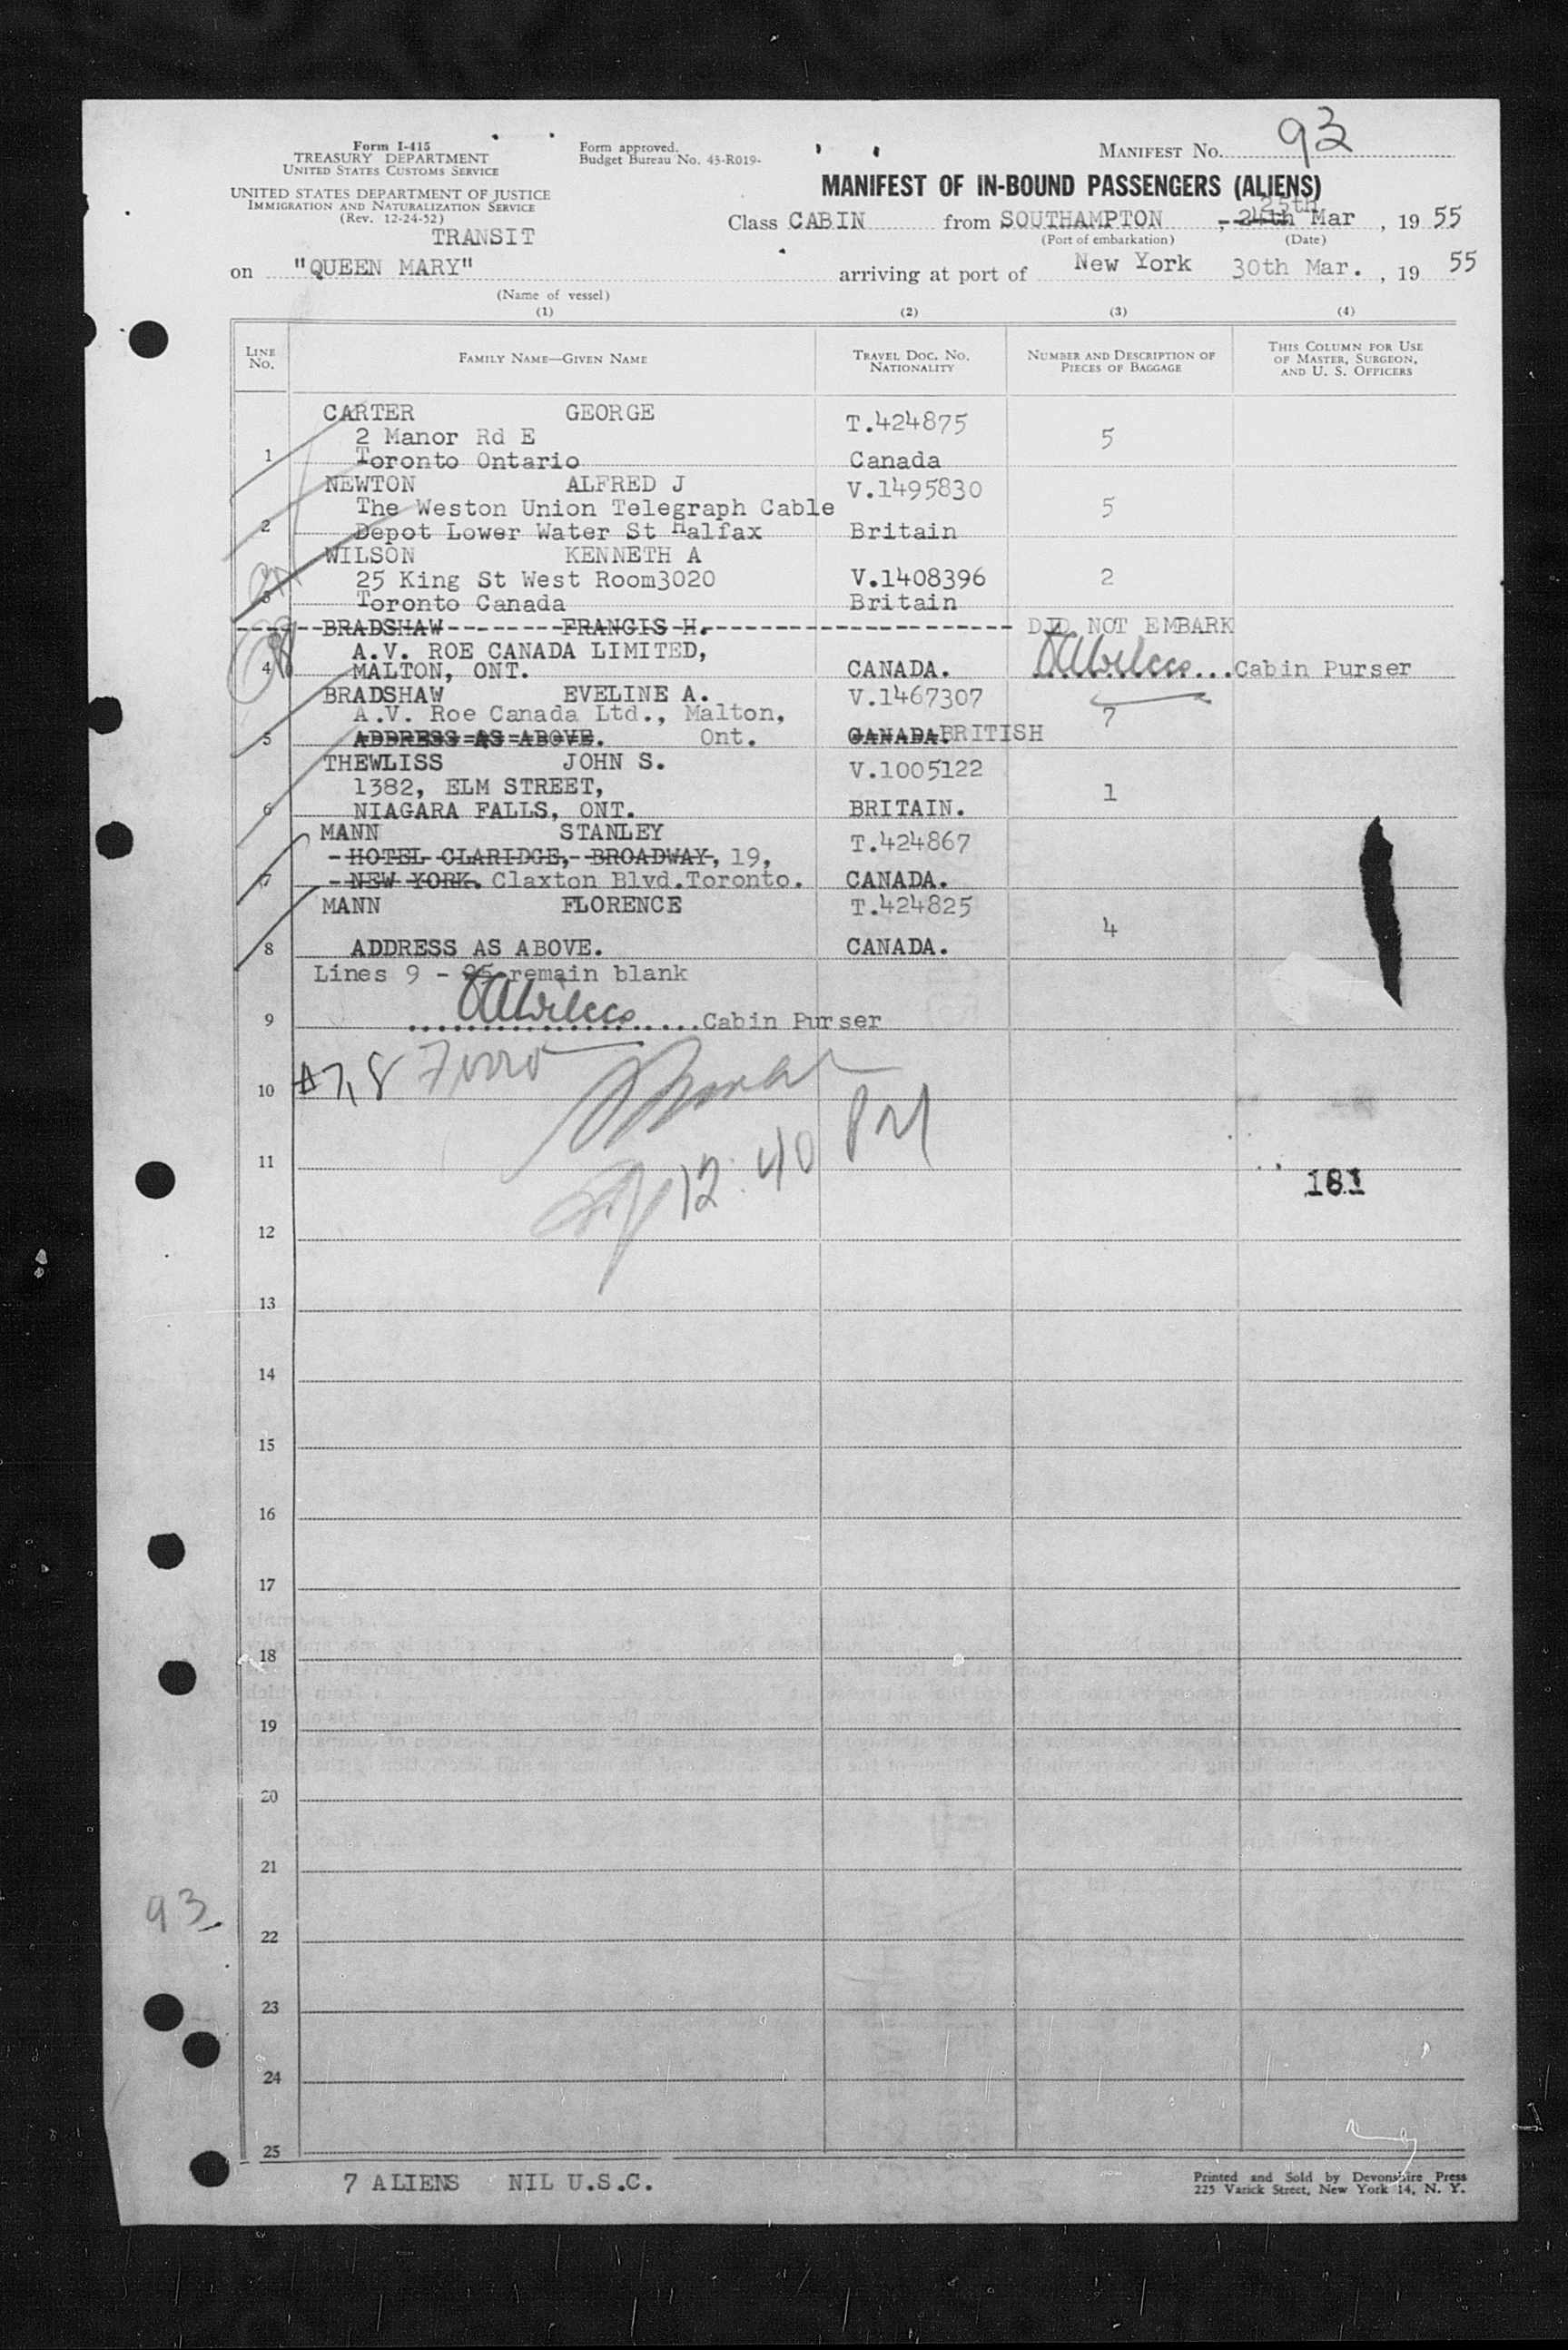 Form I-415
TREASURY DEPARTMENT
UNITED STATES CUSTOMS SERVICE
UNITED STATES DEPARTMENT OF JUSTICE
IMMIGRATION AND NATURALIZATION SERVICE
(Rev. 12-24-52)
TRANSIT
Form approved.
Budget Bureau No. 43-R019-
MANIFEST NO. 93
MANIFEST OF IN-BOUND PASSENGERS (ALIENS)
25th
Class CABIN from SOUTHAMPTON , 24th Mar , 19 55
(Port of embarkation) (Date)
on "QUEEN MARY" arriving at port of New York 30th Mar. , 19 55
(Name of vessel)
(1) (2) (3) (4)
LINE NO. FAMILY NAME—GIVEN NAME TRAVEL DOC. NO. NATIONALITY NUMBER AND DESCRIPTION OF PIECES OF BAGGAGE THIS COLUMN FOR USE OF MASTER, SURGEON, AND U. S. OFFICERS
CARTER GEORGE T.424875
2 Manor Rd E 5
1 Toronto Ontario Canada
NEWTON ALFRED J V.1495830
The Weston Union Telegraph Cable 5
2 Depot Lower Water St Halfax Britain
WILSON KENNETH A
25 King St West Room3020 V.1408396 2
3 Toronto Canada Britain
BRADSHAW FRANCIS H. DID NOT EMBARK
A.V. ROE CANADA LIMITED,
4 MALTON, ONT. CANADA. ...Cabin Purser
BRADSHAW EVELINE A. V.1467307
A.V. Roe Canada Ltd., Malton, 7
5 ADDRESS AS ABOVE. Ont. CANADA. BRITISH
THEWLISS JOHN S. V.1005122
1382, ELM STREET, 1
6 NIAGARA FALLS, ONT. BRITAIN.
MANN STANLEY T.424867
HOTEL CLARIDGE, BROADWAY, 19,
7 NEW YORK. Claxton Blvd.Toronto. CANADA.
MANN FLORENCE T.424825
4
8 ADDRESS AS ABOVE. CANADA.
Lines 9 - 25 remain blank
9 .....Cabin Purser
10 #7,8
11 12:40 PM
181
12
13
14
15
16
17
18
19
20
21
93
22
23
24
25
7 ALIENS NIL U.S.C.
Printed and Sold by Devonshire Press
225 Varick Street, New York 14, N. Y.